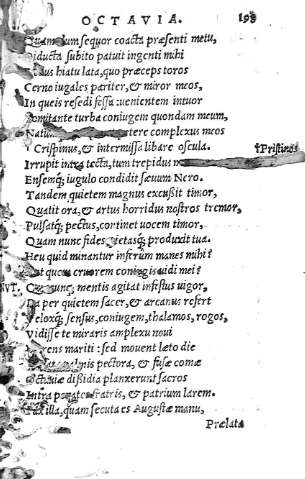 OCTAVIA. 198
Quam dum sequor coacta præsenti metu,
Diducta subito patuit ingenti mihi
hiatu lata, quo præceps toros
Cerno iugales pariter, & miror meos,
In queis resedi fessa: uenientem intuor
Comitante turba coniugem quondam meum,
complexus meos
Crispinus, & intermissa libare oscula. †Pristinos
Irrupit intra tecta, cum trepidus
Ensemq; iugulo condidit sæuum Nero.
Tandem quietem magnus excußit timor,
Quatit ora, & artus horridus nostros tremor,
Pulsatq; pectus, continet uocem timor,
Quam nunc fides pietasq; produxit tua.
Heu quid minantur inferum manes mihi?
Aut quem cruorem coniugis uidi mei?
NVT. mentis agitat infestus uigor,
Ea per quietem sacer, & arcanus refert
Veloxq; sensus, coniugem, thalamos, rogos,
Vidisse te miraris amplexu noui
Hærens mariti: sed mouent læto die
pectora, & fusæ comæ
Octauiæ dißidia planxerunt sacros
Intra penates fratris, & patrium larem.
Fax illa, quam secuta es Augustæ manu,
Prælata